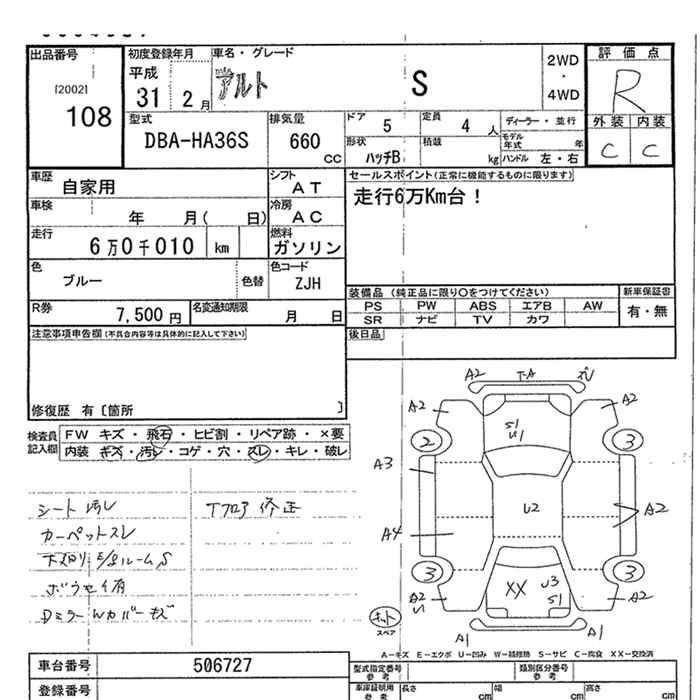 出品番号 初度登録年月 車名・グレード 評価点
[2002] 平成 アルト S 2WD R
108 31 2月 ・ 4WD
外装 内装
C C
型式 排気量 ドア 5 定員 4 人 ディーラー・並行
DBA-HA36S 660 cc 形状 ハッチB 積載 kg モデル年式 年
ハンドル 左・右
車歴 自家用 シフト AT セールスポイント(正常に機能するものに限ります)
車検 年 月( 日) 冷房 AC 走行6万Km台!
走行 6万0千010 km 燃料 ガソリン
色 ブルー 色替 色コード ZJH
装備品 (純正品に限り○をつけてください) 新車保証書
R券 7,500円 名変通知期限 月 日 PS PW ABS エアB AW 有・無
SR ナビ TV カワ
注意事項申告欄(不具合内容等は具体的に記入して下さい) 後日品
修復歴 有〔箇所 〕
検査員記入欄 FW キズ・飛石・ヒビ割・リペア跡・×要
内装 キズ・汚レ・コゲ・穴・スレ・キレ・破レ
シート汚レ Tフロア修正
カーペットスレ
Dミラーwカバーキズ
A2 T-A
A2 A2
S1
U1
2 3
A3
U2 A2
A4
3 3
XX U3
S1
A2 A2
U
スペア
A1 A1
A-キズ E-エクボ U-凹み W-補修跡 S-サビ C-腐食 XX-交換済
車台番号 506727 型式指定番号 参考 類別区分番号 参考
登録番号 車庫証明用 参考 長さ cm 幅 cm 高さ cm